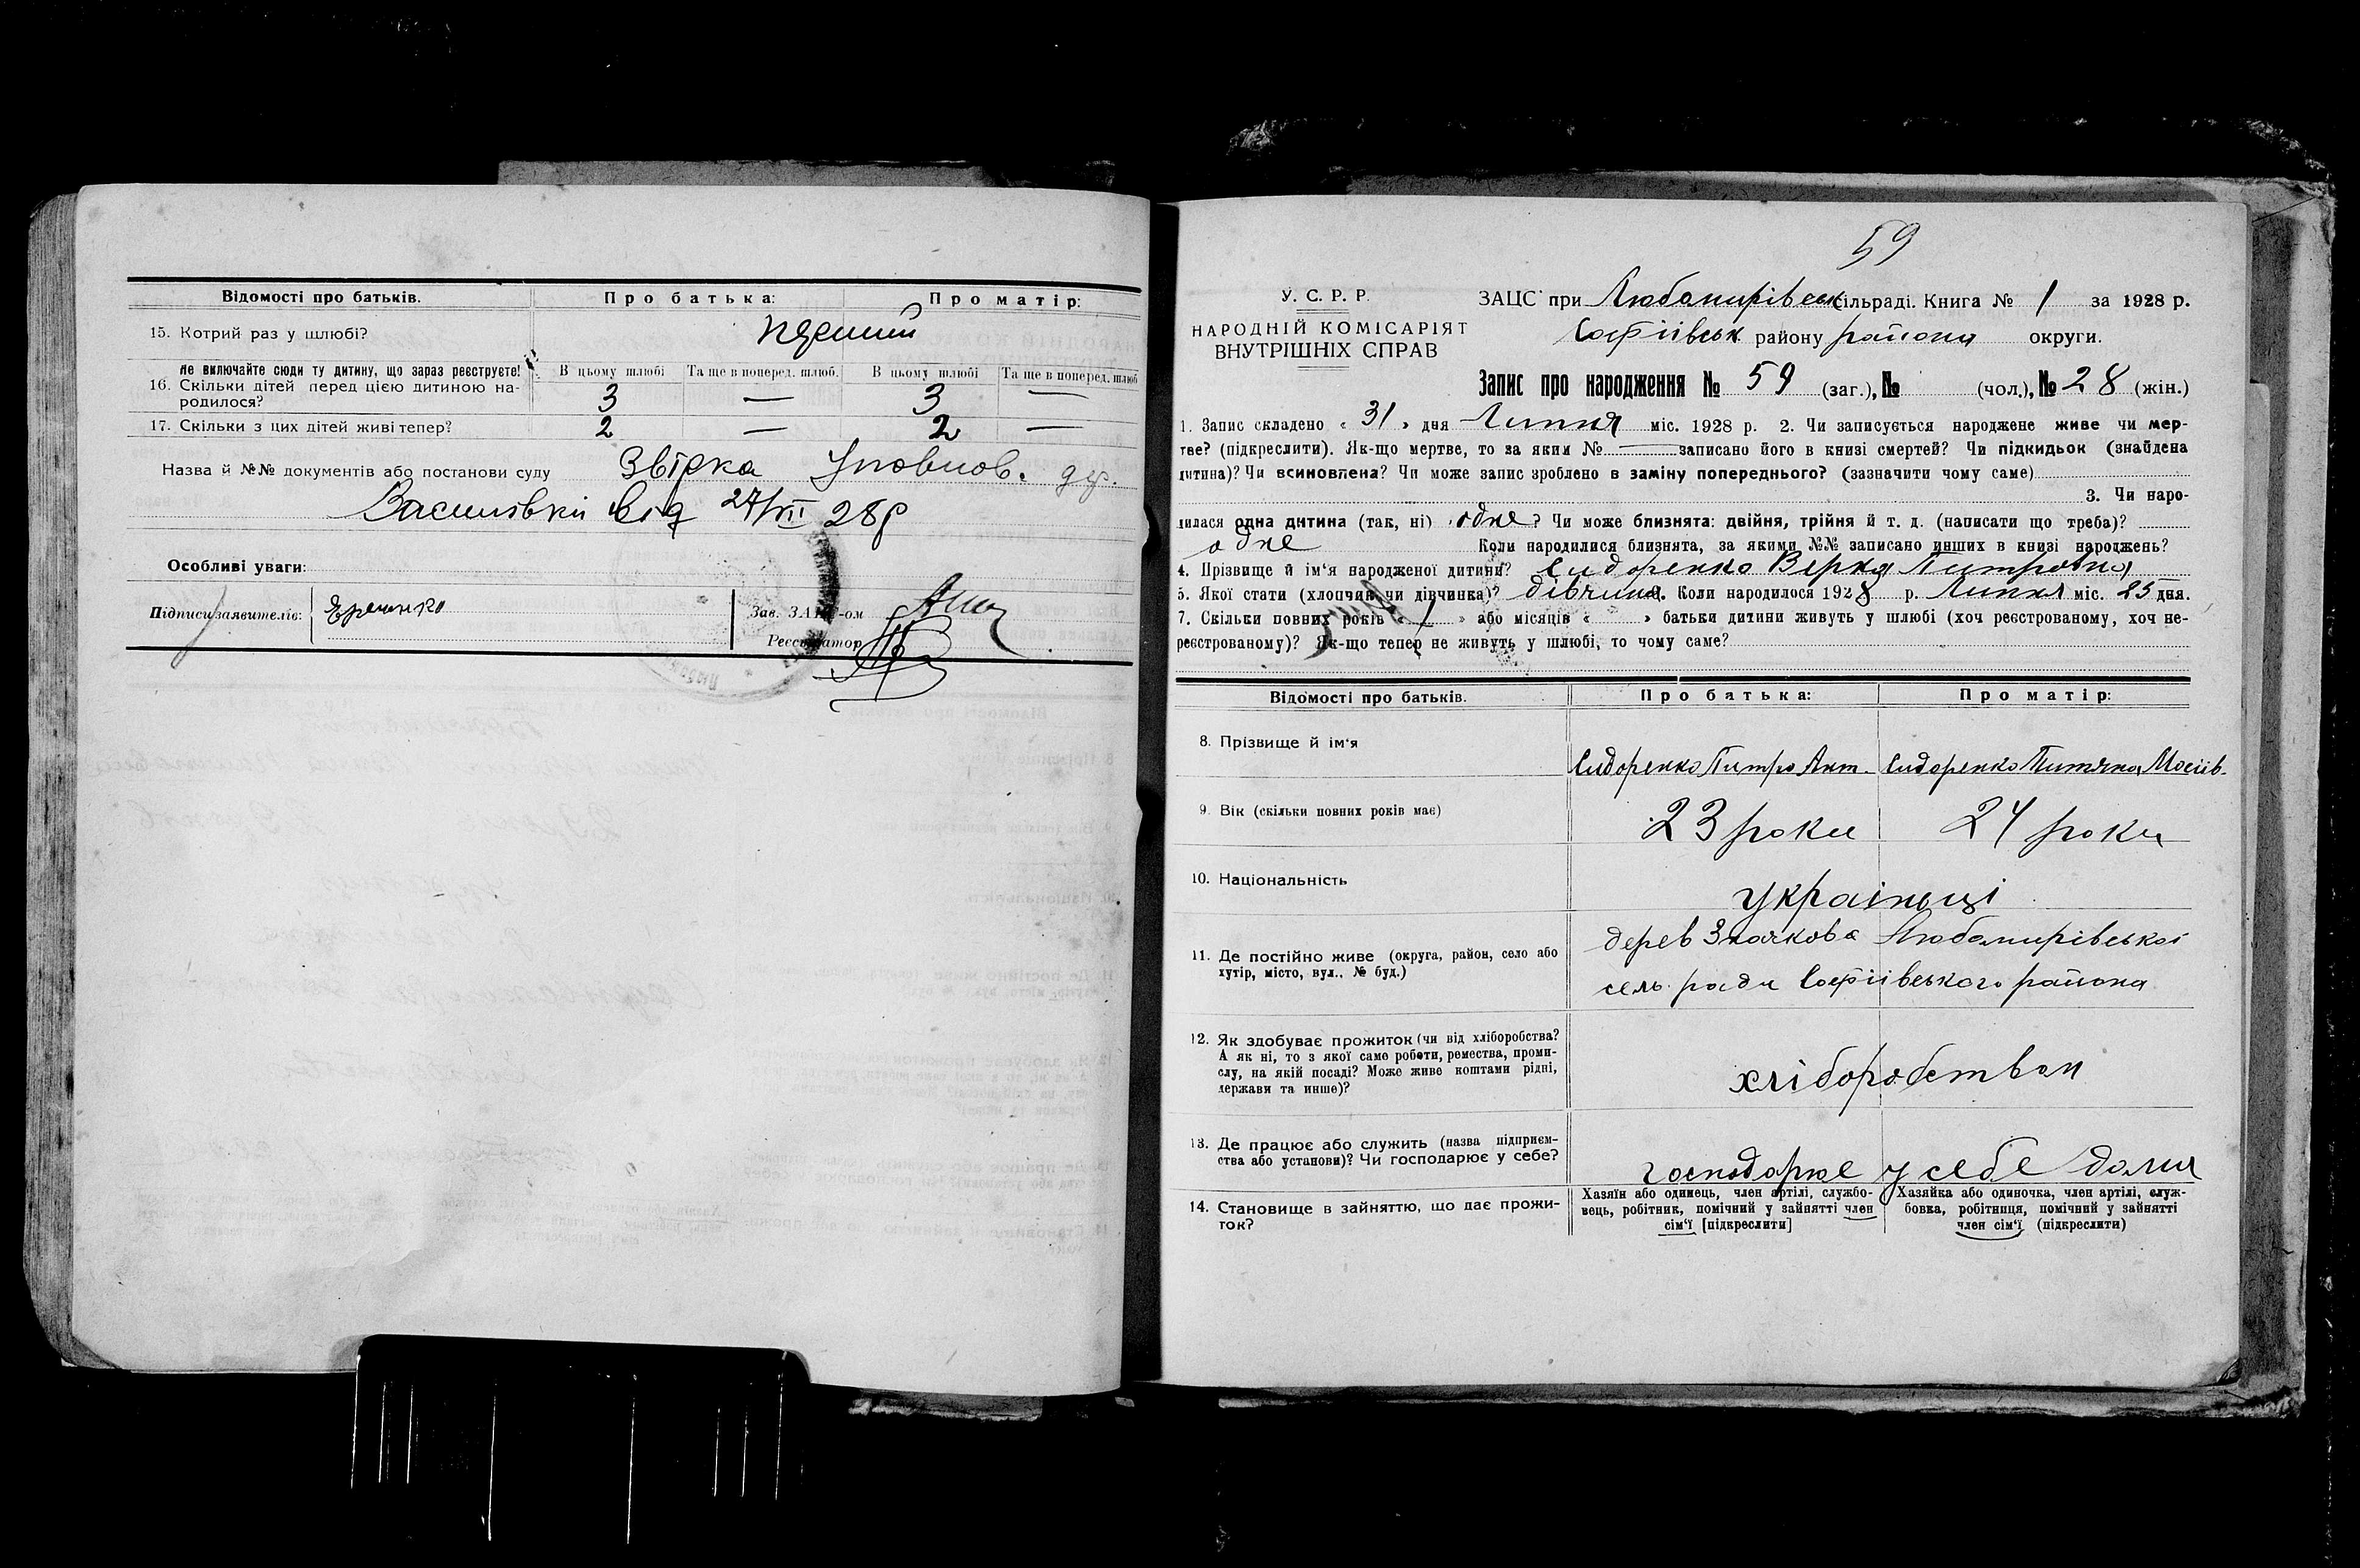 Відомості про батьків. Про батька: Про матір:
15. Котрий раз у шлюбі? перший
Не включайте сюди ту дитину, що зараз реєструєте! В цьому шлюбі Та ще в поперед. шлюб. В цьому шлюбі Та ще в поперед. шлюб
16. Скільки дітей перед цією дитиною на- 3 — 3 —
родилося?
17. Скільки з цих дітей живі тепер? 2 — 2 —
Назва й №№ документів або постанови суду Звірка Уповнов. дер.
Василівки від 27/VII 28р
Особливі уваги:
Підписи заявителів: Зав. ЗАГС-ом
Реєстратор
59
У. С. Р. Р.
НАРОДНІЙ КОМІСАРІЯТ
ВНУТРІШНІХ СПРАВ
ЗАЦС при Любамирівськ сільраді. Книга № 1 за 1928 р.
Софіівськ району района округи.
Запис про народження № 59 (заг.), № (чол.), № 28 (жін.)
1. Запис складено « 31 » дня Липня міс. 1928 р. 2. Чи записується народжене живе чи мер-
тве? (підкреслити). Як-що мертве, то за яким № — записано його в книзі смертей? Чи підкидьок (знайдена
дитина)? Чи всиновлена? Чи може запис зроблено в заміну попереднього? (зазначити чому саме)
3. Чи наро-
дилася одна дитина (так, ні) одне? Чи може близнята: двійня, трійня й т. д. (написати що треба)?
одне Коли народилися близнята, за якими №№ записано инших в книзі народжень?
4. Прізвище й ім'я народженої дитини? Сидоренко Верка Питровна
5. Якої стати (хлопчик чи дівчинка)? дівчина 6. Коли народилося 1928 р. Липня міс. 25 дня.
7. Скільки повних років « 1 » або місяців « » батьки дитини живуть у шлюбі (хоч реєстрованому, хоч не-
реєстрованому)? Як-що тепер не живуть у шлюбі, то чому саме?
Відомості про батьків. Про батька: Про матір:
8. Прізвище й ім'я Сидоренко Питро Ант. Сидоренко Мосіів.
9. Вік (скільки повних років має) 23 роки 24 роки
10. Національність українці
11. Де постійно живе (округа, район, село або
хутір, місто, вул., № буд.)
дерев Значкова Любамирівської
сель. ради Софіівського района
12. Як здобуває прожиток (чи від хліборобства?
А як ні, то з якої саме роботи, ремества, проми-
слу, на якій посаді? Може живе коштами рідні,
держави та инше)?
хліборобством
13. Де працює або служить (назва підприєм-
ства або установи)? Чи господарює у себе?
господарює у себе дома
14. Становище в зайняттю, що дає прожи-
ток?
Хазяїн або одинець, член артілі, службо-
вець, робітник, помічний у зайнятті член
сім'ї [підкреслити]
Хазяйка або одиночка, член артілі, служ-
бовка, робітниця, помічний у зайнятті
член сім'ї (підкреслити)